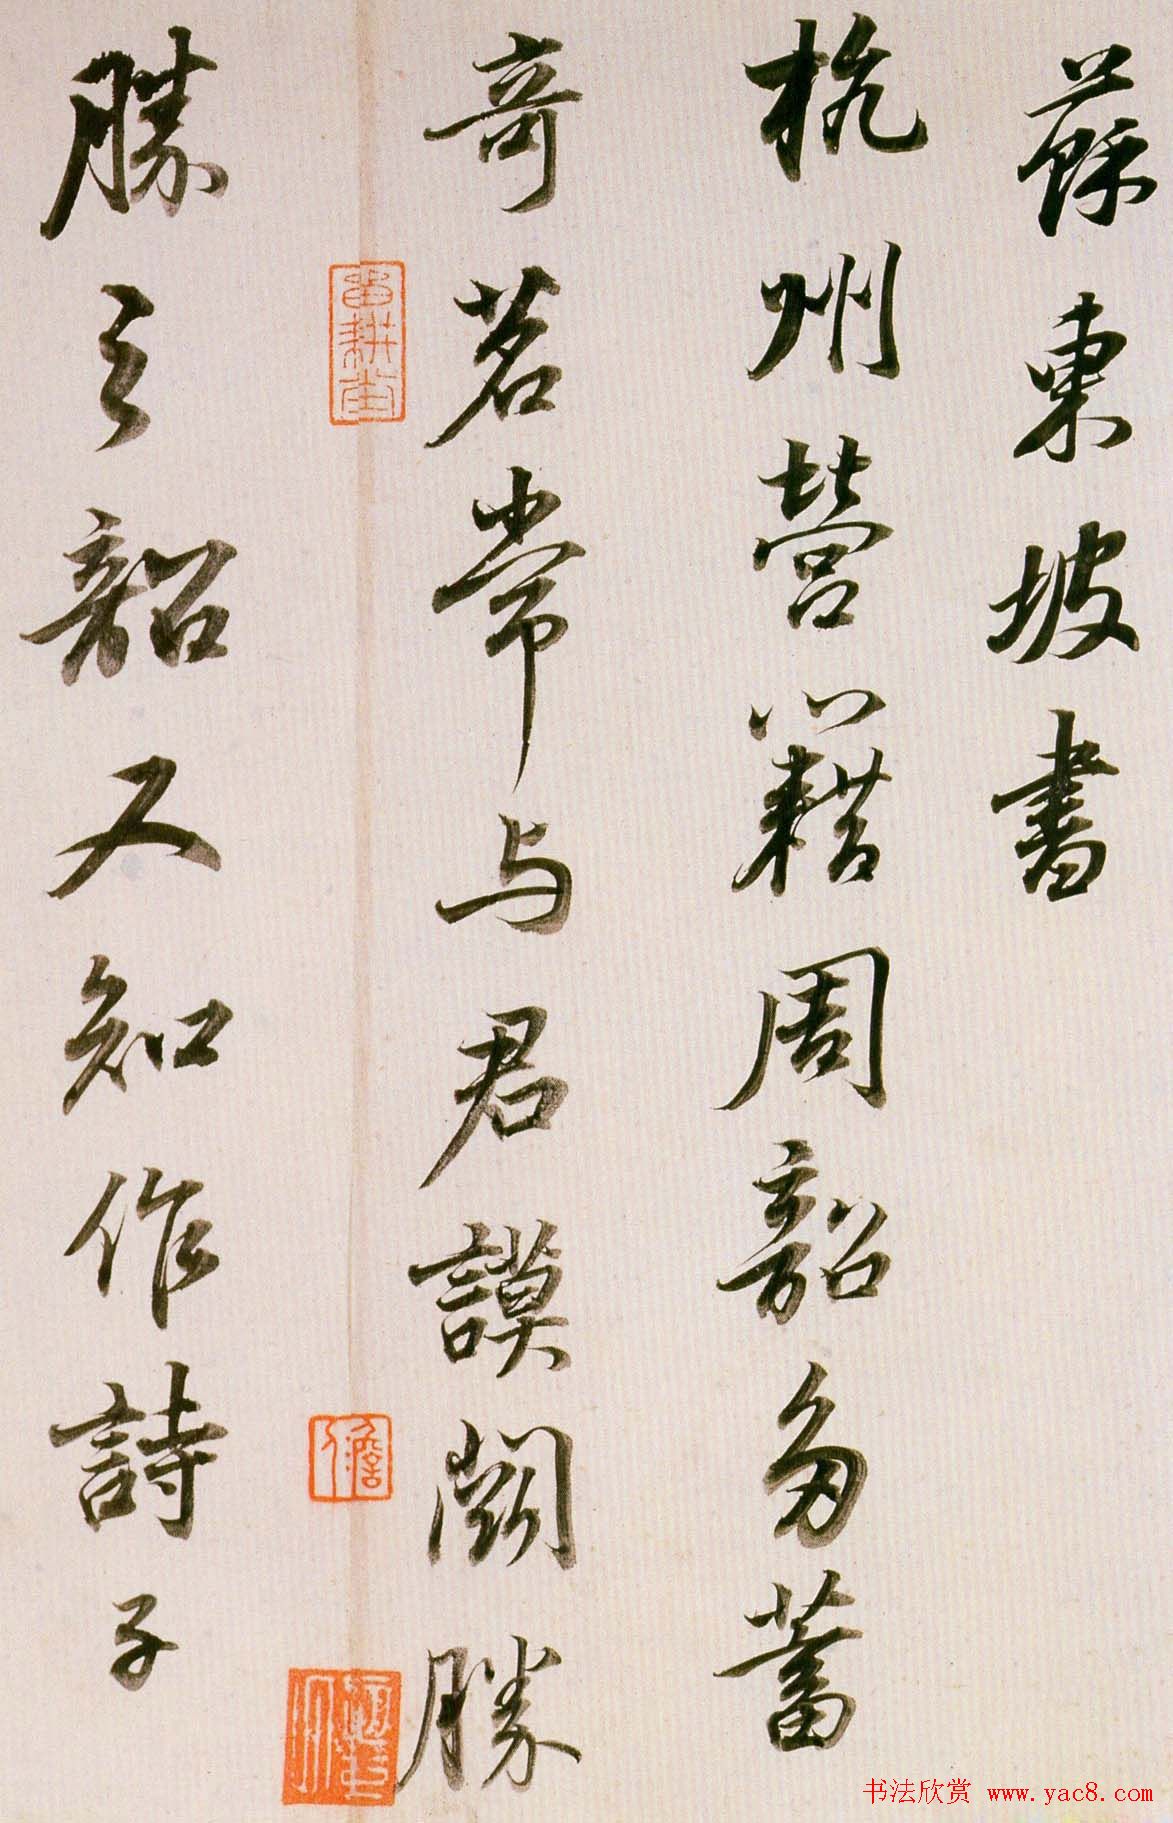 蘇東坡書
杭州營籍周韶多蓄
奇茗常与君謨鬪勝
勝之韶又知作詩子
留耕堂
書法欣赏 www.yac8.com